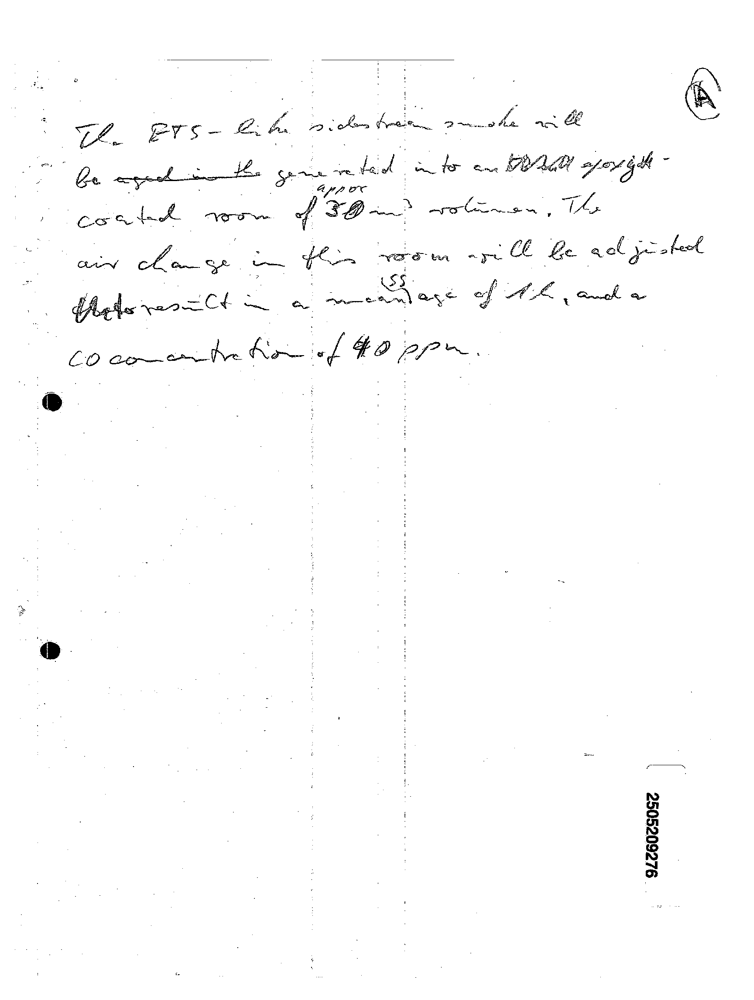 A
The ETS-like sidestream smoke will
be aged in the generated into an epoxyde-
appor
coated room of 30 m³ volumen. The
air change in this room will be adjusted
SS
to result in a mean age of 1h, and a
CO concentration of 40 ppm.
2505209276